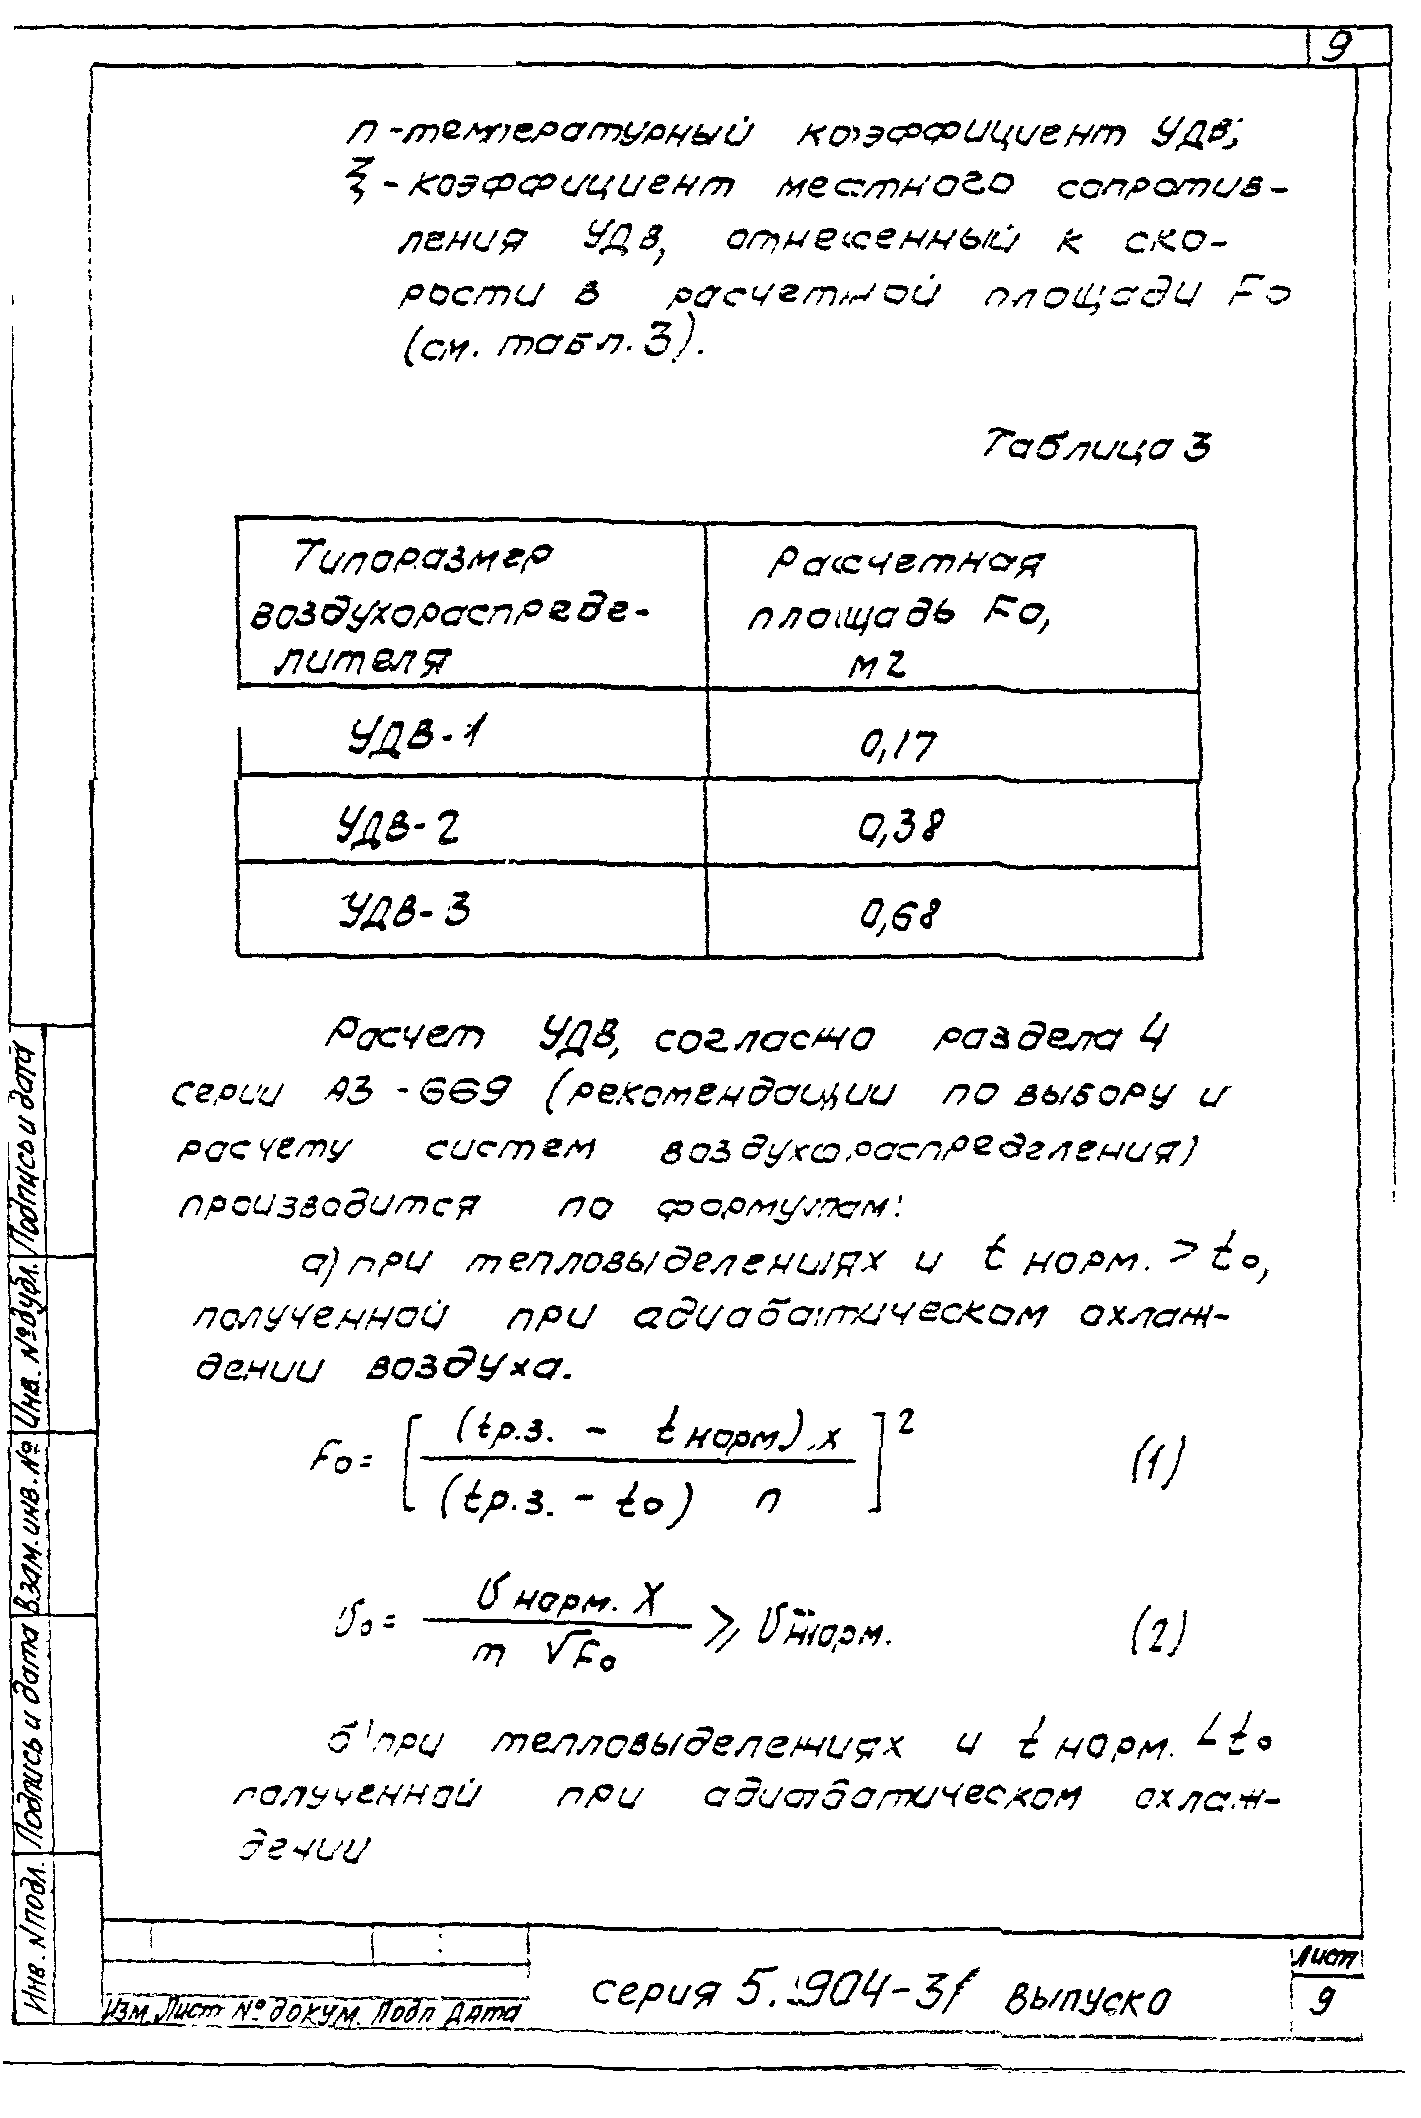 9
n - температурный коэффициент УДВ;
ξ - коэффициент местного сопротив-
ления УДВ, отнесенный к ско-
рости в расчетной площади Fо
(см. табл. 3).
Таблица 3
Типоразмер воздухораспреде-лителя | Расчетная площадь Fо, м2
УДВ-1 | 0,17
УДВ-2 | 0,38
УДВ-3 | 0,68
Расчет УДВ, согласно раздела 4
серии А3-669 (рекомендации по выбору и
расчету систем воздухораспределения)
производится по формулам:
а) при тепловыделениях и t норм. > tо,
полученной при адиабатическом охлаж-
дении воздуха.
Fо = [ (tр.з. - t норм). x / (tр.з. - tо) n ]² (1)
Vо = V норм. X / m √Fо ⩾ V норм. (2)
б) при тепловыделениях и t норм. < tо
полученной при адиабатическом охлаж-
дении
Инв. №подл. Подпись и дата Взам. инв. № Инв. № дубл. Подпись и дата
Изм Лист № докум. Подп Дата
серия 5.904-31 выпуск 0
Лист
9